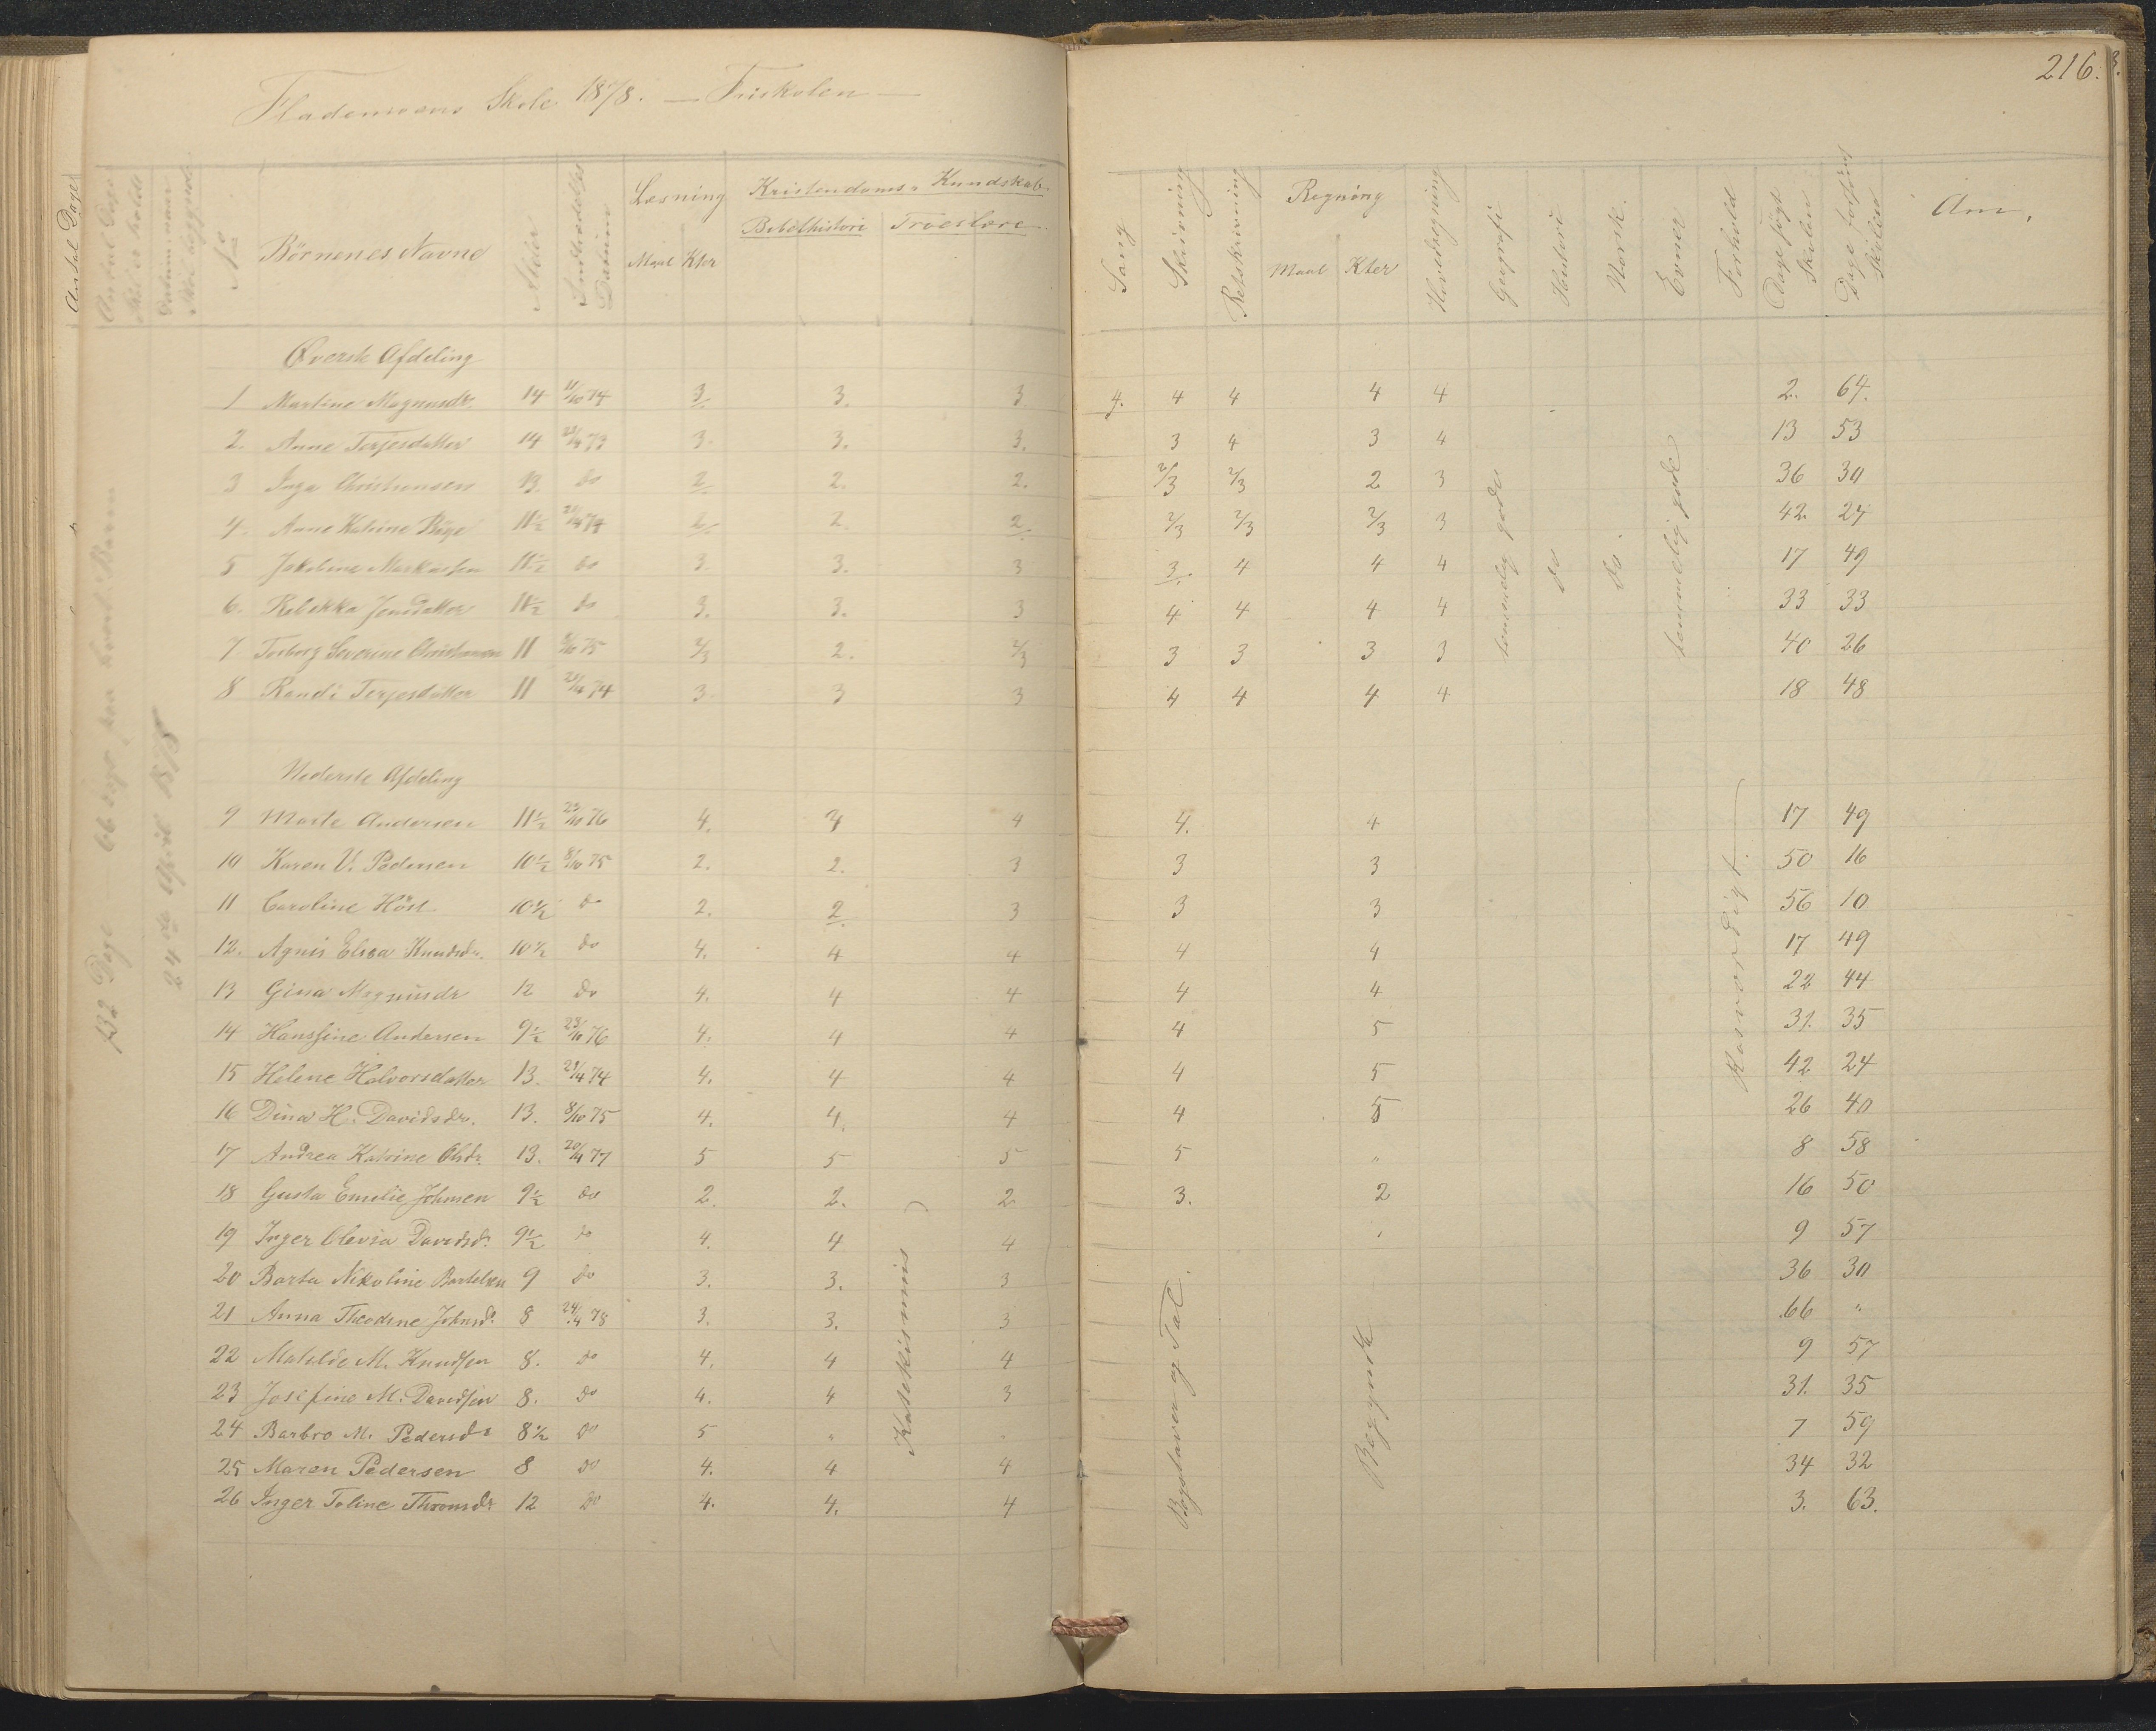 216.
Flademoens Skole 1878. — Friskolen —
Antal Dage
No
Börnenes Navne
Alder
Indtrædelses Datum
Læsning
Maal Kter
Kristendoms-Kundskab.
Bibelhistorie
Troeslære
Sang
Skrivning
Retskrivning
Regning
Maal Kter
Hovedregning
Geografi
Historie
Norsk.
Evner
Forhold
Dage søgt Skolen
Dage forsømt Skolen
Anm.
132 Dage
24de April 1878
Øverste Afdeling
1 Martine Magnusdr. 14 11/10 74 3. 3. 3 4. 4 4 4 4 2. 64.
2. Anne Terjesdatter 14 23/4 73 3. 3. 3. 3 4 3 4 13 53
3 Inga Christiansen 13. do 2. 2. 2. 2/3 2/3 2 3 36 30
4. Anne Katrine Böye 11½ 74 2. 2. 2. 2/3 2/3 2/3 3 42. 24
5 Jakobine Markussen 11½ do 3. 3. 3 3. 4 4 4 17 49
6. Rebekka Jensdatter 11½ do 3. 3. 3 4 4 4 4 33 33
7 Torborg Severine Christiansen 11 8/10 75 2/3 2. 2/3 3 3 3 3 40 26
8 Randi Terjesdatter 11 74 3 3 3 4 4 4 4 18 48
temmelig gode
do
do.
temmelig gode
Nederste Afdeling
9 Marte Andersen 11½ 23/10 76 4. 4 4. 4 17 49
10 Karen V. Pedersen 10½ 8/10 75 2. 2. 3 3 3 50 16
11 Caroline Höst 10½ do 2. 2. 3 3 3 56 10
12. Agnis Elisa Knudsdr. 10½ do 4. 4 4 4 4 17 49
13 Gina Magnusdr 12 do 4. 4 4 4 4 22 44
14 Hansine Andersen 9½ 23/10 76 4. 4 4 4 5 31. 35
15 Helene Halvorsdatter 13. 74 4. 4 4 4 5 42 24
16 Dina H. Davidsdr. 13. 8/10 75 4. 4. 4 4 5 26 40
17 Andrea Katrine Olsdr. 13. 20/4 77 5 5 5 5 " 8 58
18 Gusta Emilie Johnsen 9½ do 2. 2. 2 3. 2 16 50
19 Inger Olevia Davidsdr. 9½ do 4. 4 4 9 57
20 Berta Nikoline Bertelsen 9 do 3. 3. 3 36 30
21 Anna Theodine Johnsdr. 8 24/4 78 3. 3. 3 66 "
22 Matilde M. Knudsen 8. do 4. 4 4 9 57
23 Josefine M. Davidsen 8. do 4. 4 3 31. 35
24 Barbro M. Pedersdr 8½ do 5 " 7 59
25 Maren Pedersen 8 do 4. 4 4 34 32
26 Inger Toline Thromsdr 12 do 4. 4. 4 3. 63.
Katekismus
Bogstaver og Tal.
Begyndt
Rosværdigt.